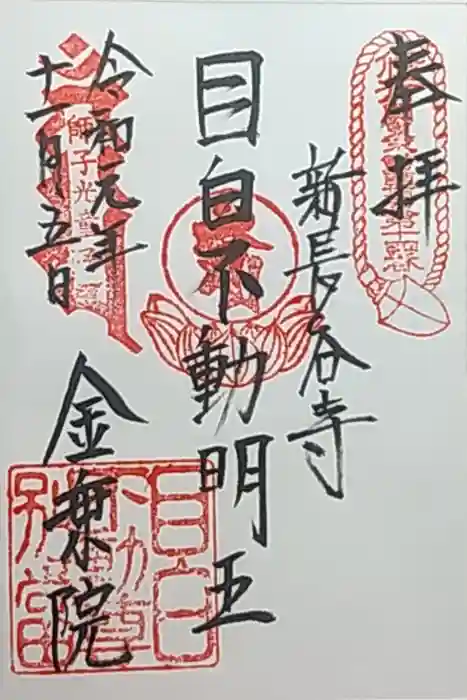 奉拝
新長谷寺
目白不動明王
令和元年
十一月十五日
金乗院
師子光童子
目白
不動尊
別當